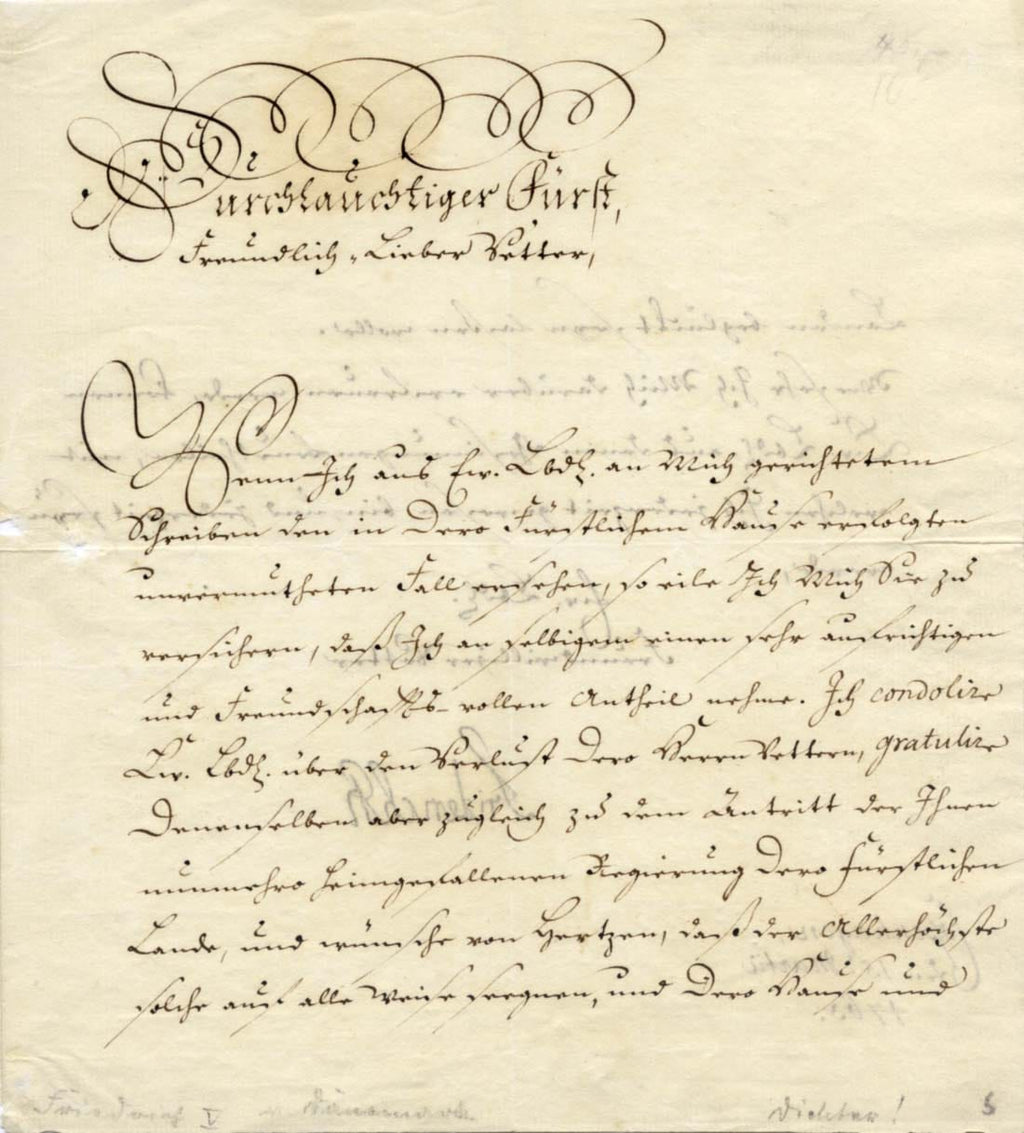 Durchlauchtiger Fürst,
Freundlich-Lieber Vetter,
Wenn Ich aus Ew. Lbdl. an Mich gerichtetem
Schreiben den in Dero Fürstlichem Hause erfolgten
unvermutheten Fall ersehen, so eile Ich Mich Sie zu
versichern, daß Ich an selbigem einen sehr aufrichtigen
und Freundschaffts-vollen Antheil nehme. Ich condolire
Ew. Lbdl. über den Verlust Dero Herrn Vettern, gratulire
Denenselben aber zugleich zu dem Antritt der Ihnen
nunmehro heimgefallenen Regierung Dero Fürstlichen
Lande, und wünsche von Hertzen, daß der Allerhöchste
solche auf alle Weise seegnen, und Dero Hause und
Friedrich V v Dänemark
Dichter!